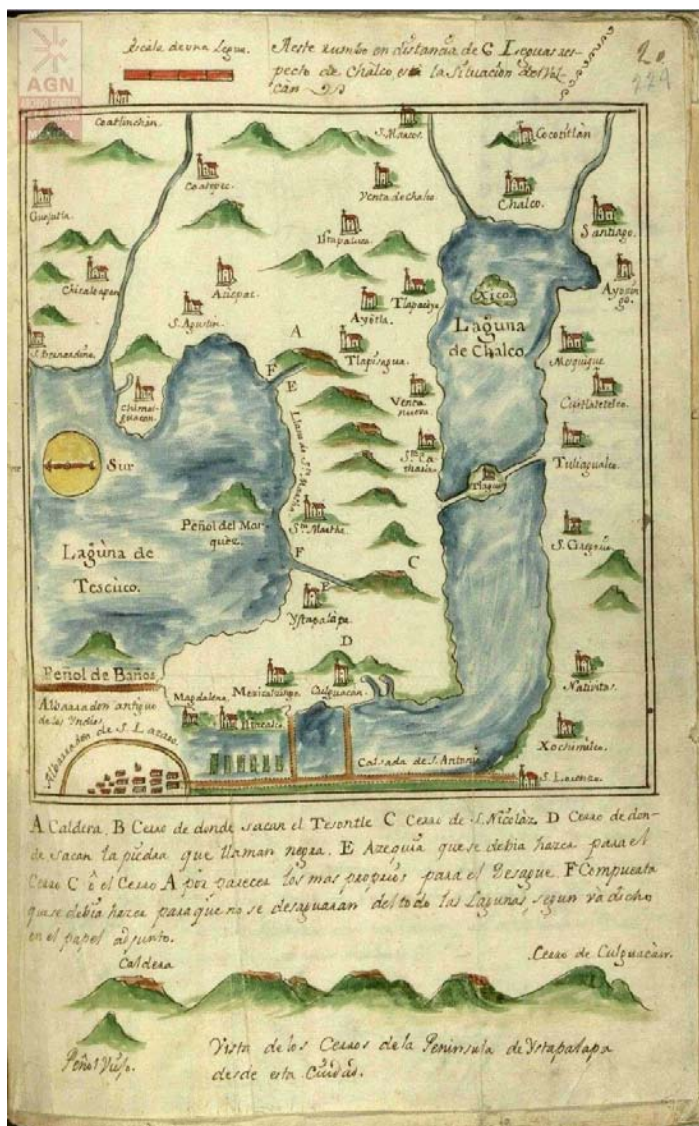 Escala de una Legua.
A este rumbo en distancia de 6 Leguas res-
pecto de Chalco està la Situacion del Vol-
can
20
229
AGN
ARCHIVO GENERAL
Coatlinchàn
S. Marcos
Cocotitlàn
Coatepec.
Venta de Chalco
Chalco.
Guejutla
Santiago.
Istapaluca
Chicaloapan
Aticpac.
Tlapacoya
Xico.
Ayosin-
go.
S. Agustin.
Ayòtla.
Laguna
de Chalco
A
S. Bernardino
Tlapisagua.
Mesquique
F
E
Chimal-
guacan.
Venta
nueva
Cuitlatetelco.
Llano de Sta. Martha
Sta. Ca-
tharina
Sur
Tuliagualco.
Tlaguac
Peñol del Mar-
quez.
Sta. Martha
S. Gregorio
F
C
Laguna de
Tescuco.
E
Ystapalapa
D
Peñol de Baños.
Mexicalsingo
Culguacàn.
Nativitas.
Magdalena
Albarradon antiguo
de los Yndios
Albarradon de S. Lazaro.
Xochimilco
Calsada de S. Antonio
S. Lorenzo
A Caldera. B Cerro de donde sacan el Tesontle C Cerro de S. Nicolàz D Cerro de don-
de sacan la piedra que llaman negra. E Azequia que se debia hazer para el
Cerro C ò el Cerro A por parecer los mas proprios para el Desague. F Compuerta
que se debia hazer para que no se desaguaran del todo las Lagunas, segun và dicho
en el papel adjunto.
Caldera
Cerro de Culguacàn.
Peñol Viejo.
Vista de los Cerros de la Peninsula de Ystapalapa
desde esta Ciudad.